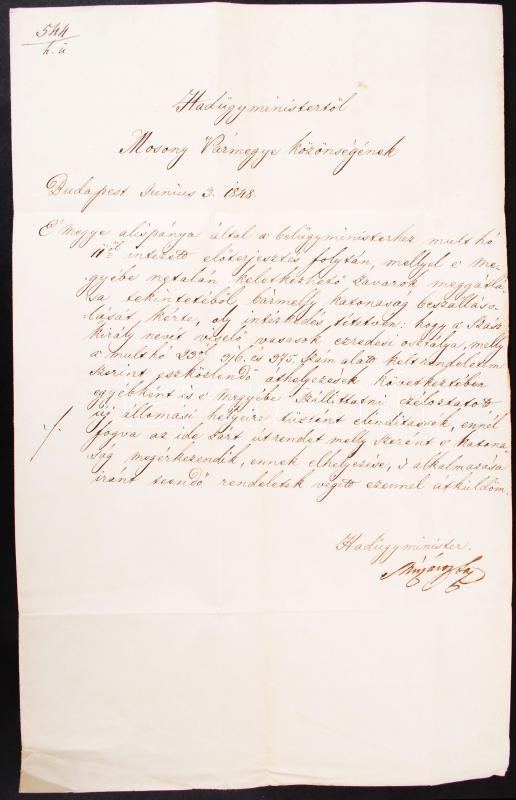 544
h. ü
Hadügyministertől
Mosony Vármegye közönségének
Budapest Junius 3. 1848.
E' megye alispánya által a belügyministerhez mult hó
11ről intézett előterjesztés folytán, mellyel e' me-
gyébe netalán keletkezhető zavarok meggátlá-
sa tekintetéből bármelly katonaság beszálláso-
lását kérte, oly intézkedés tétetvén: hogy a Szász
király nevét viselő vasasok ezredesi osztálya, melly
a mult hó 23ról 376. és 375 szám alatt kelt rendeletem
szerint eszközlendő áthelyezések következtében
egyébként is e' megyébe szállíttatni czéloztatott
új állomási helyeire tüstént elindíttassék, ennél
fogva az ide zárt útrendet melly szerént e' katona-
ság megérkezendik, ennek elhelyezése, 's alkalmazása
iránt teendő rendeletek végett ezennel átküldöm.
Hadügyminister.